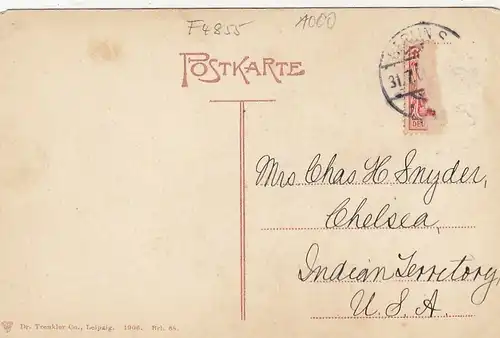 F4855
1000
POSTKARTE
BERLIN S
31.7
Mrs Chas H. Snyder,
Chelsea,
Indian Territory,
U.S.A.
Dr. Trenkler Co., Leipzig. 1906. Brl. 88.